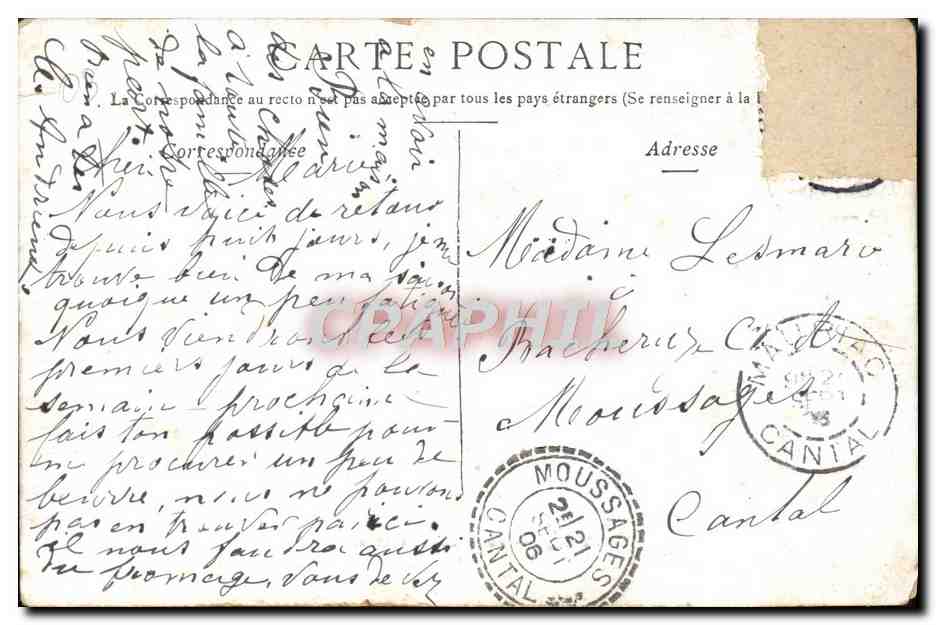 CARTE POSTALE
La Correspondance au recto n'est pas acceptée par tous les pays étrangers (Se renseigner à la
Correspondance
Adresse
Marie
Nous voici de retour
depuis huit jours, je me
trouve bien de ma saison
quoique un peu fatiguée
Nous viendrons les
premiers jours de la
semaine prochaine
fais ton possible pour
me procurer un peu de
beurre, nous ne pouvons
pas en trouver par ici.
il nous faudra aussi
du fromage, vous devez
en avoir
à la maison
des choses
à toute
la famille
de notre
part.
Bien à
Madame Lesmarie
à
Moussages
Cantal
MAURIAC
CANTAL
MOUSSAGES
2E 21
SEPT
06
CANTAL
CPAPHIL